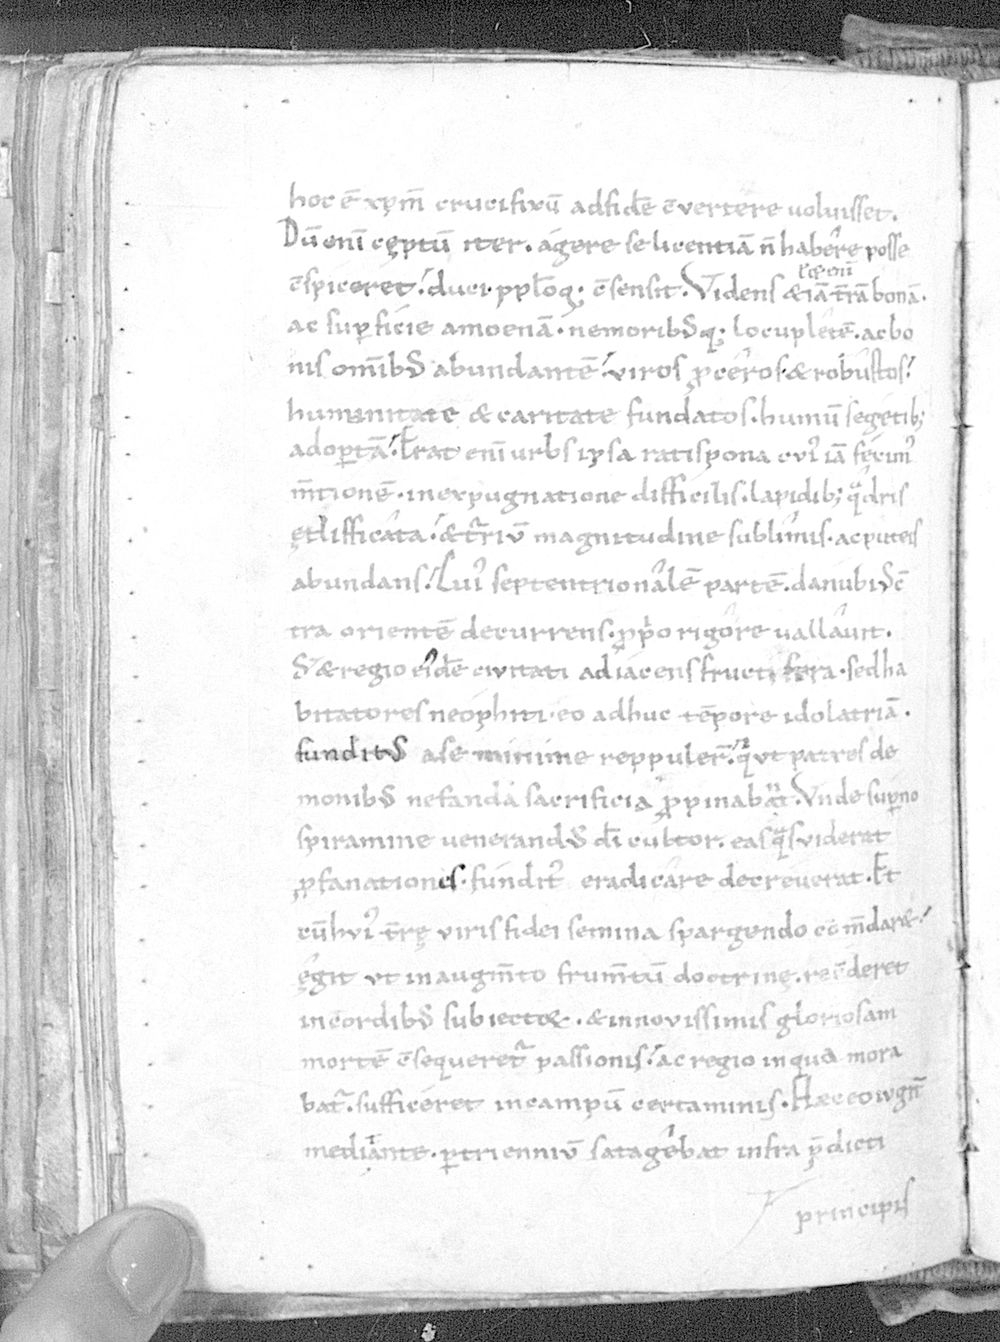 hoc ē xp̄m̄ crucifixū ad fidē ēvertere voluisset.
Dū eni͂ cęptū iter. agere se licentiā n̄ habere posse
ēspiceret. duci. ppl̄oq; ēsensit. Videns &iā t̄rā bonā.
ac sup̱ficie amoenā. nemoribꝰq; locupletē. ac bo
nis om̄ibꝰ abundantē. viros p̱ceros. & robustos.
humanitate & caritate fundatos. humū segetib;
adop̱tā. Erat eni͂ urbs ipsa ratispona cui᾽ iā fecim᾽
m̄tionē. inexpugnatione difficilis. lapidib; qᵃdris
ędificata. & t̄riū magnitudine sublimis. ac puteis
abundans. Cui᾽ septentrionalē partē. danubiꝰ ē
tra orientē decurrens. p̱p̱o rigore vallavit.
S & regio eidē civitati adiacens fructifera. sed ha
bitatores neophiti. eo adhuc tēpore idolatriā.
funditꝰ a se minime reppuler̄. qᵃ ut patres de
monibꝰ nefanda sacrificia p̱pinabat. Vnde sup̱no
spiramine venerandꝰ dī cultor. eas qᵃs viderat
p̱fanationes. fundit᾽ eradicare decreverat. Et
cū hui᾽ t̄rę viris fidei semina spargendo cōm̄dare.
ęgit ut in augm̄to frum̄tū doctrinę. redderet
in cordibꝰ subiectoꝝ. & in novissimis gloriosam
mortē ēsequeret᾽ passionis. ac regio in qua mora
bat᾽. sufficeret in campū certaminis. Haec eo ivgit᾽
mediante. p̱ trienniū satagebat infra p̄dicti
principis